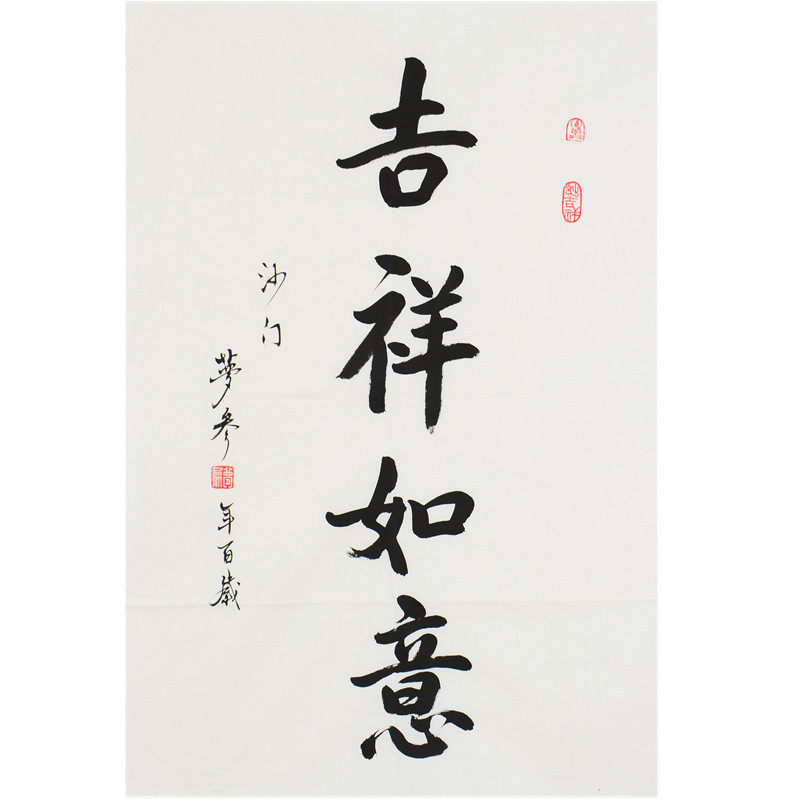 吉祥如意
沙门
夢参
年百歲